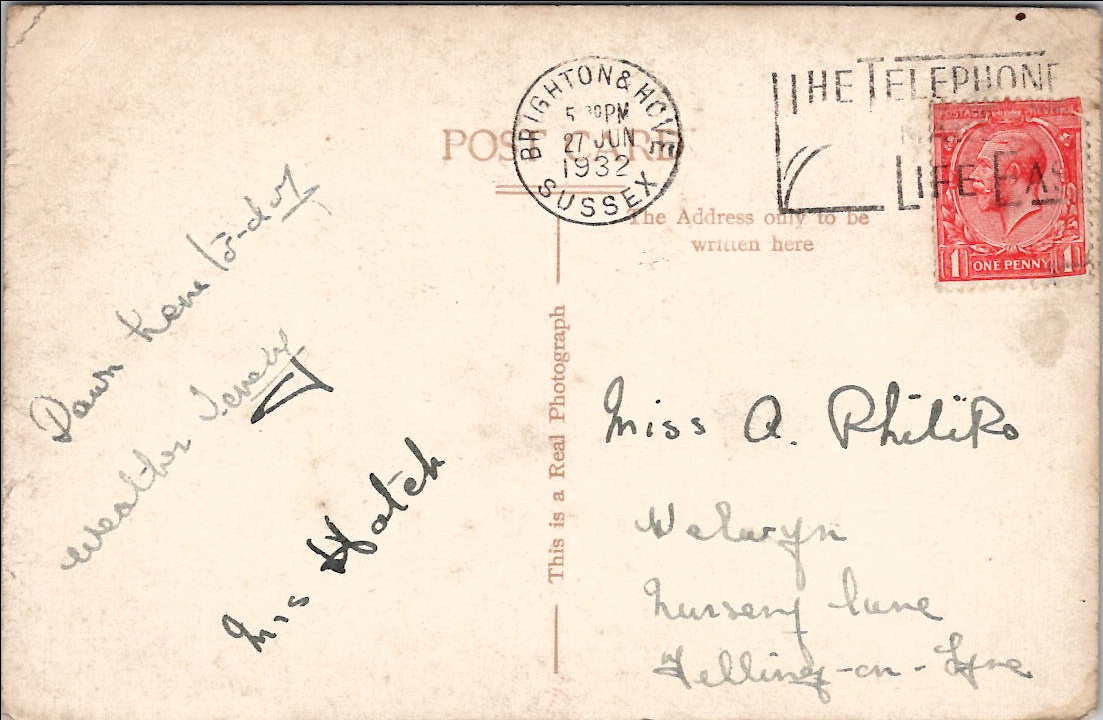 BRIGHTON & HOVE
PM
27 JUN
1932
SUSSEX
THE TELEPHONE
LIFE EAS
POST CARD
The Address only to be
written here
ONE PENNY
1 1
This is a Real Photograph
Down here to-day
weather lovely
Mrs Hatch
Miss A. Philips
Welwyn
Nursery Lane
Felling-on-Tyne